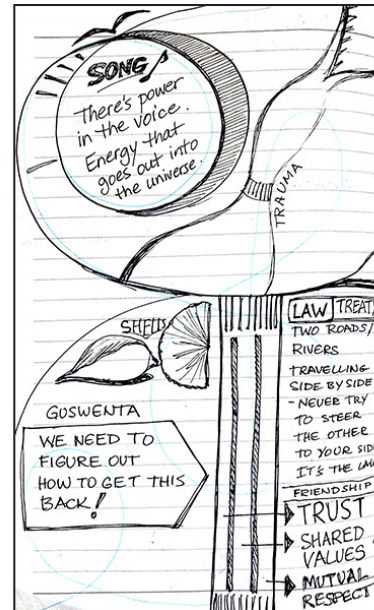 SONG
There's power
in the voice.
Energy that
goes out into
the universe.
TRAUMA
SHELLS
GUSWENTA
WE NEED TO
FIGURE OUT
HOW TO GET THIS
BACK!
LAW TREAT
TWO ROADS/
RIVERS
TRAVELLING
SIDE BY SIDE
- NEVER TRY
TO STEER
THE OTHER
TO YOUR SID
IT'S THE LAW
FRIENDSHIP
TRUST
SHARED
VALUES
MUTUAL
RESPECT